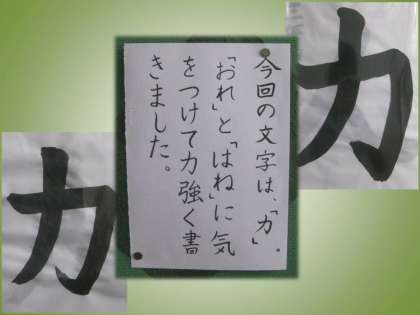 力
今回の文字は、「力」。
「おれ」と「はね」に気
をつけて力強く書
きました。
力